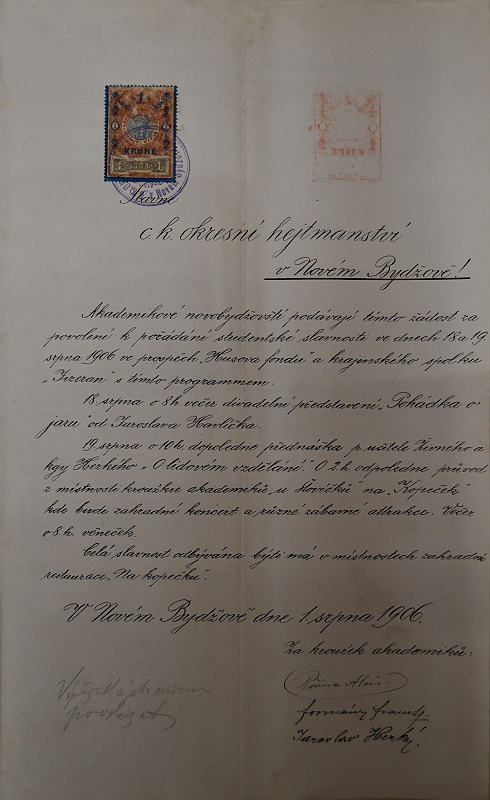 1
KRONE
Slavné
c. k. okresní hejtmanství
v Novém Bydžově!
Akademikové novobydžovští podávají tímto žádost za
povolení k pořádání studentské slavnosti ve dnech 18 a 19.
srpna 1906 ve prospěch „Husova fondu" a krajinského spolku
„Jizeran" s tímto programmem.
18. srpna o 8 h večer divadelní představení „Pohádka o
jaru" od Jaroslava Havlíčka.
19. srpna o 10 h. dopoledne přednáška p. učitele Živného a
kgy Herkého „O lidovém vzdělání". O 2 h. odpoledne průvod
z místnosti kroužku akademiků „u Slovíčků" na „Kopeček"
kde bude zahradní koncert a různé zábavné attrakce. Večer
o 8 h. věneček.
Celá slavnost odbývána býti má v místnostech zahradní
restaurace „Na kopečku".
V Novém Bydžově dne 1. srpna 1906.
Za kroužek akademiků:
Alois
Jaroslav Herký.